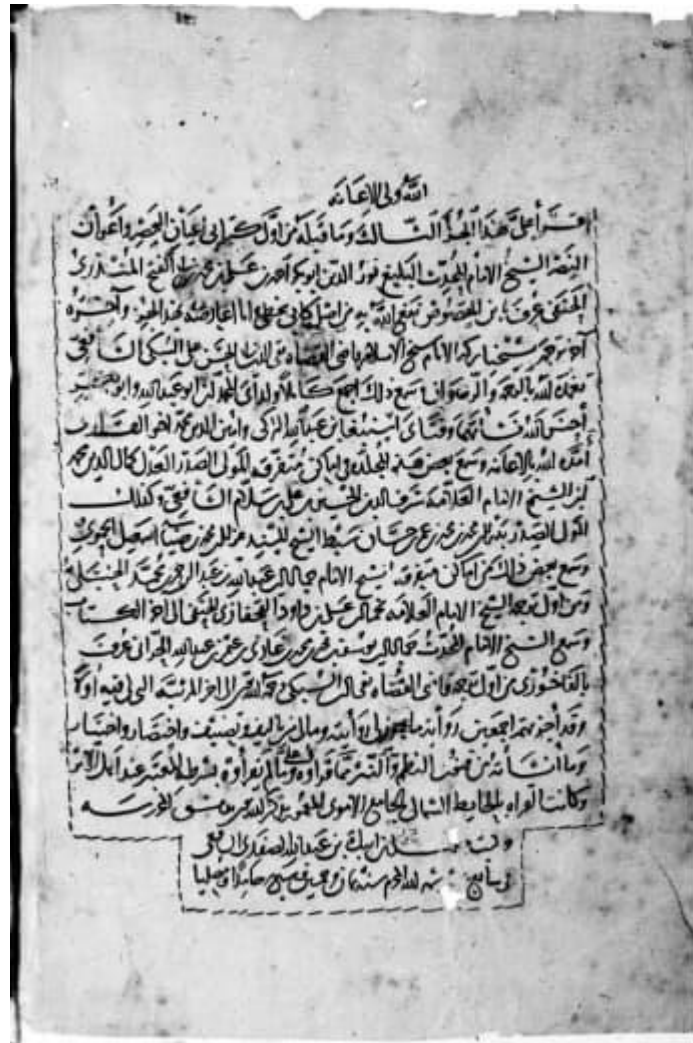 الله ولي الإعانة
قرأ علي هذا الجزء الثالث وما قبله من أول كتابي أعيان العصر وأعوان
النصر الشيخ الإمام المحدث البليغ نور الدين أبو بكر أحمد بن علي بن محمد بن أبي الفتح المنذري
الحنفي عرف بابن المقصوص نفع الله به من أصل كتابي بخطي وأنا أعارضه بهذا الجزء وآخره
آخر ترجمة شيخنا بركة الإسلام قاضي القضاة تقي الدين أبي الحسن علي السبكي الشافعي
تغمده الله بالرحمة والرضوان وسمع ذلك أجمع كاملا ولداي المحمدان أبو عبد الله وأبو
أحسن الله نشأتهما وفتاي أسنبغا بن عبد الله التركي وأمين الدين محمد أخو القارئ
أمده الله بالإعانة وسمع بعض هذه المجلدة في أماكن متفرقة المولى الصدر العدل كمال الدين محمد
ابن الشيخ الإمام العلامة شرف الدين الحسين بن علي بن سلام الشافعي وكذلك
المولى الصدر بدر الدين محمد بن محمد بن عمر سبط الشيخ المسند عز الدين محمد بن إسمعيل الحموي
وسمع بعض ذلك من أماكن متفرقة الشيخ الإمام جمال الدين عبد الله بن عبد الرحمن بن محمد الحنبلي
ومن أول ترجمة الشيخ الإمام العلامة نجم الدين علي بن داود القحفازي الحنفي إلى آخر الكتاب
وسمع الشيخ الإمام المحدث جمال الدين يوسف بن محمد بن عمر بن عبد الله الحراني عرف
من أول ترجمة قاضي القضاة تقي الدين السبكي رحمه الله إلى آخر المرثية التي لي فيه أولا
وقد أجزتهم أجمعين رواية ما يجوز لي روايته ومالي من تأليف وتصنيف واختصار واختيار
وما أنشأته من صنعتي النظم والنثر مما قرأوه علي وما لم يقرأوه بشرطه المعتبر عند أهل الأثر
وكانت القراءة بالحايط الشمالي بالجامع الأموي المعمور بذكر الله بدمشق المحروسة
وكتب خليل بن أيبك بن عبد الله الصفدي الشافعي
في سابع شهر الله المحرم سنة ثمان وخمسين وسبع حامدا ومصليا